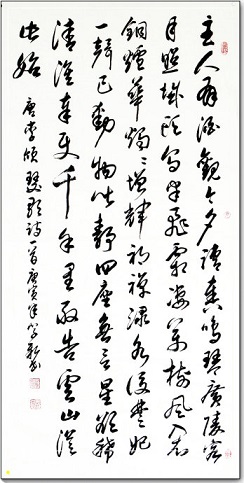 主人有酒歡今夕請奏鳴琴廣陵客
月照城頭烏半飛霜淒萬樹風入衣
銅爐華燭燭增輝初彈淥水後楚妃
一聲已動物皆靜四座無言星欲稀
清淮奉使千餘里敢告雲山從
此始
唐李頎琴歌詩一首庚寅年